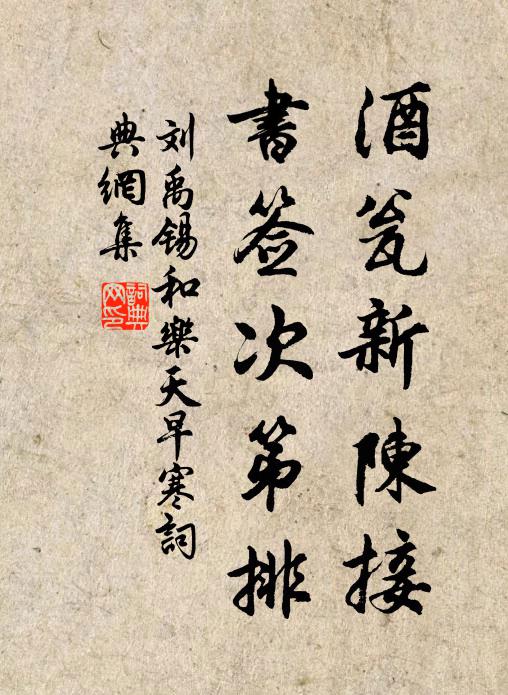 酒瓮新陳接
書签次第排
刘禹锡和樂天早寒詞
典網集
詞典
网印